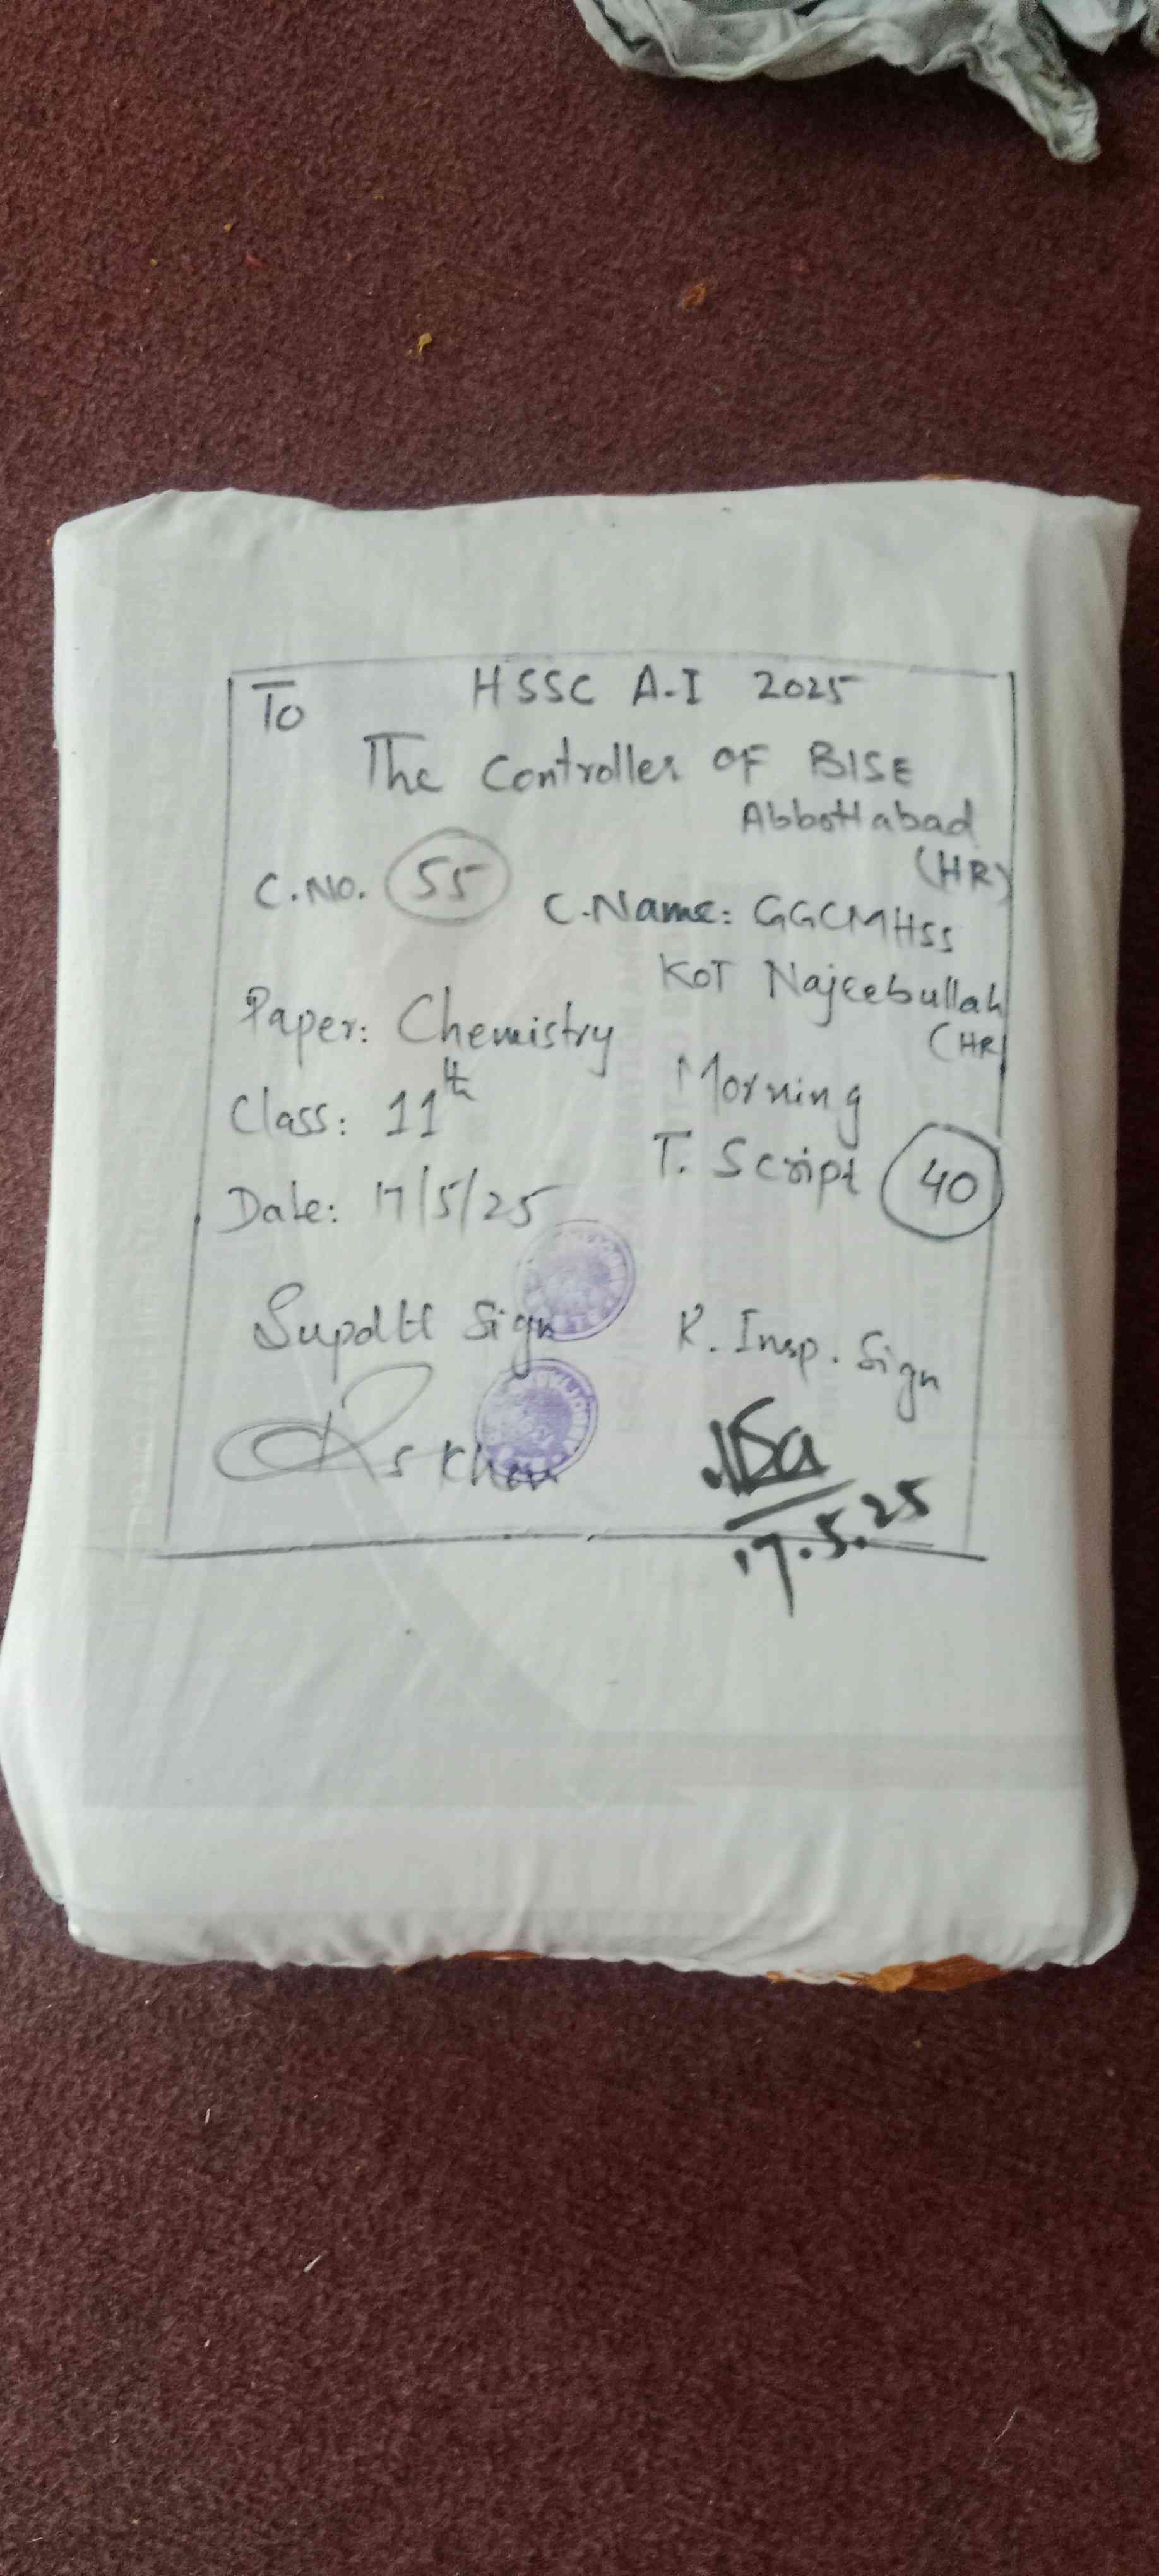 HSSC A-I 2025
To
The Controller OF BISE
Abbottabad
(HR)
C.No. 55
C.Name: GGCMHSS
KOT Najeebullah
(HR
Paper: Chemistry
Morning
Class: 11th
T. Script 40
Date: 17/5/25
Supdtt Sign
R. Insp. Sign
s Khan
17.5.25